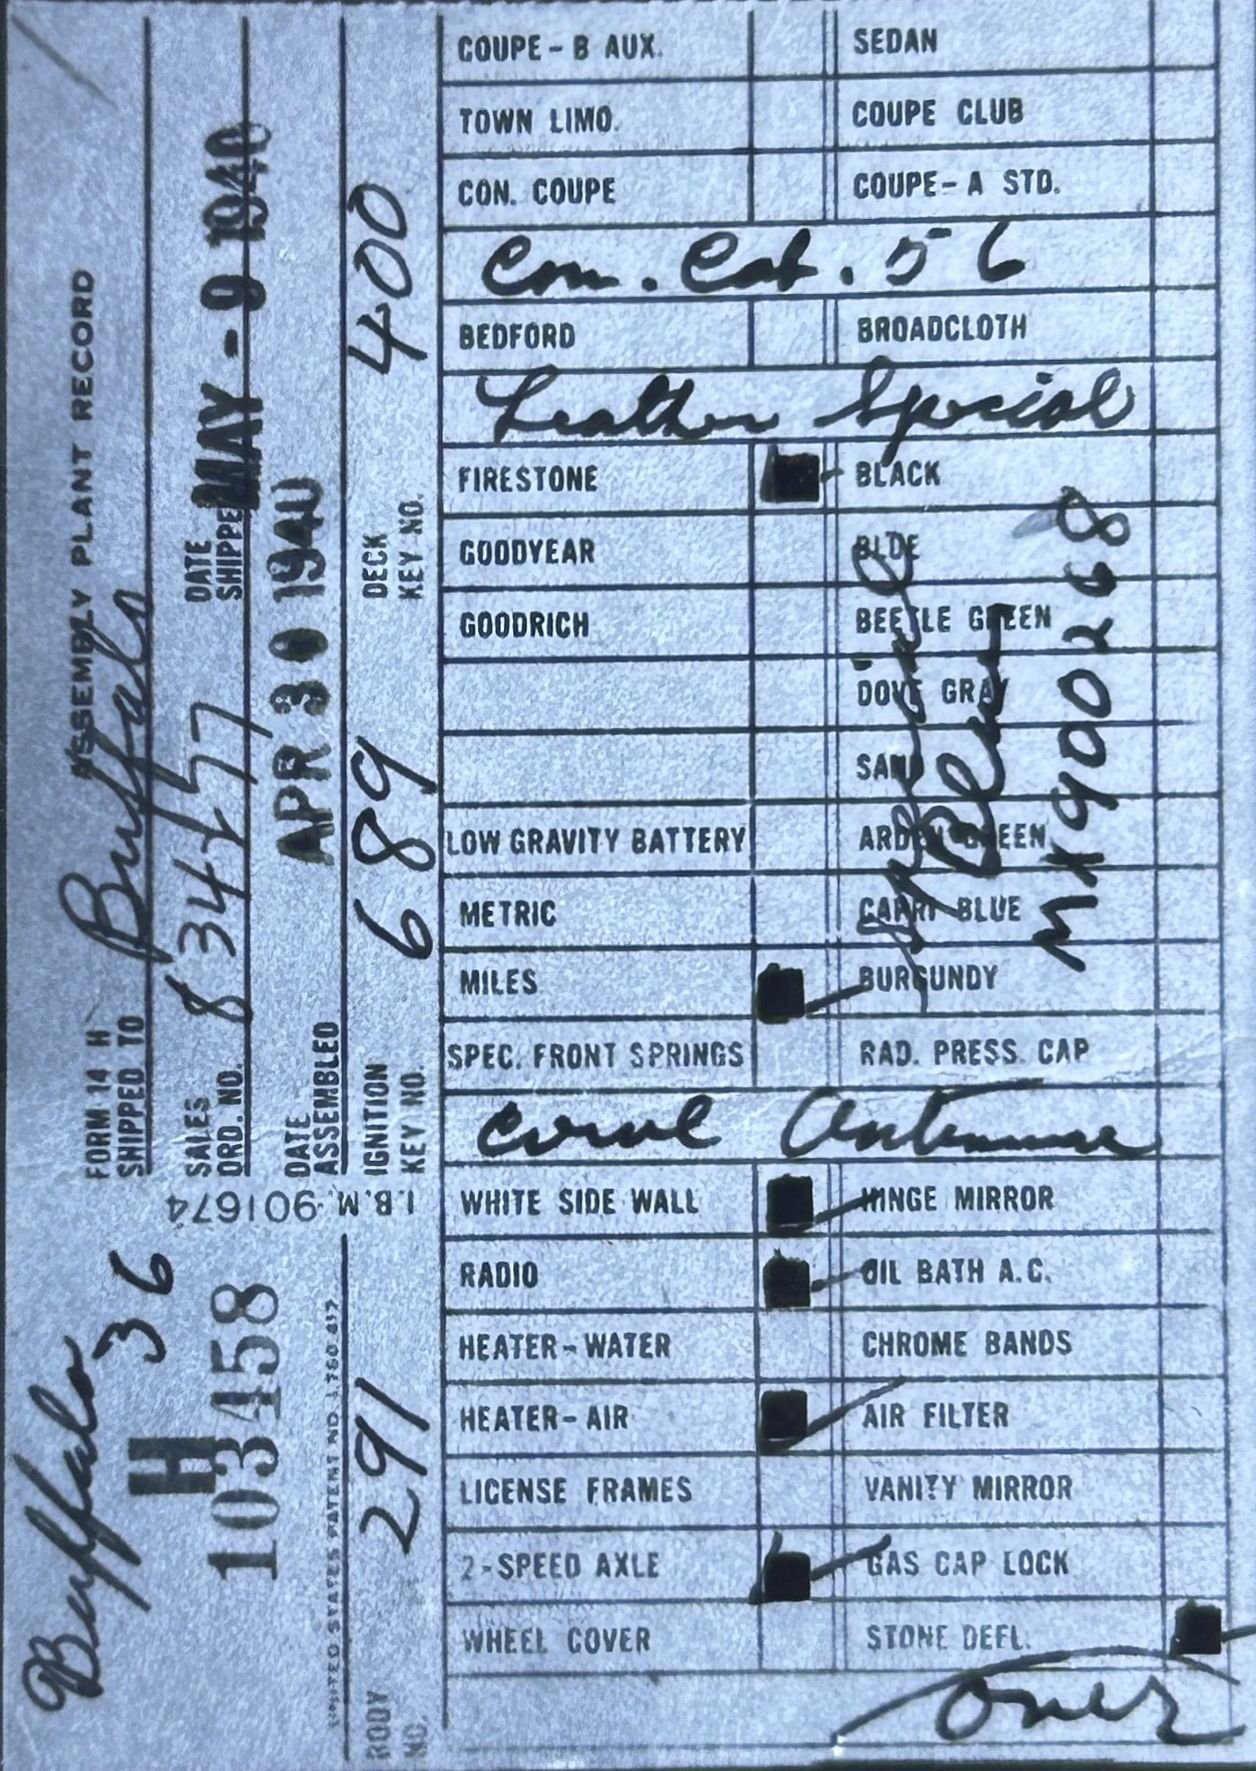 FORM 14 H ASSEMBLY PLANT RECORD
SHIPPED TO Buffalo
SALES ORD. NO. 83477
DATE SHIPPED MAY - 9 1940
DATE ASSEMBLED APR 30 1940
IGNITION KEY NO. 689
DECK KEY NO. 400
I.B.M. 901674
Buffalo
36
H
103458
UNITED STATES PATENT NO. 1,780,857
BODY NO. 291
COUPE - B AUX. SEDAN
TOWN LIMO. COUPE CLUB
CON. COUPE COUPE - A STD.
Con. Cab. 56
BEDFORD BROADCLOTH
Leather Special
FIRESTONE BLACK
GOODYEAR BLUE
GOODRICH BEETLE GREEN
DOVE GRAY
SAND
LOW GRAVITY BATTERY ARDEN GREEN
METRIC CAPRI BLUE
MILES BURGUNDY
Blue
M X 900268
SPEC. FRONT SPRINGS RAD. PRESS. CAP
Cowl Antennae
WHITE SIDE WALL HINGE MIRROR
RADIO OIL BATH A.C.
HEATER - WATER CHROME BANDS
HEATER - AIR AIR FILTER
LICENSE FRAMES VANITY MIRROR
2 - SPEED AXLE GAS CAP LOCK
WHEEL COVER STONE DEFL.